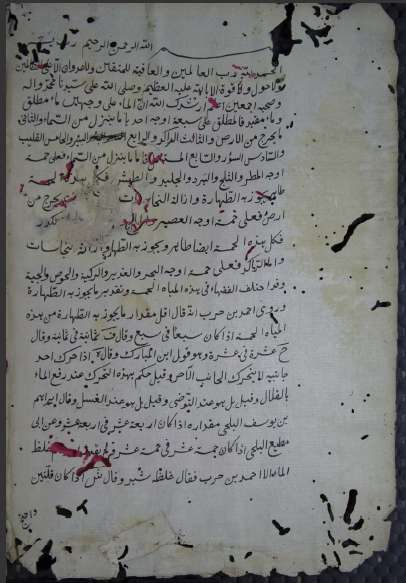 الله الرحمن الرحيم
الحمد لله رب العالمين والعاقبة للمتقين ولا عدوان الا على الظالمين
ولا حول ولا قوة الا بالله العظيم وصلى الله على سيدنا محمد واله
وصحبه اجمعين اعلم ارشدك الله ان الماء على وجهين ماء مطلق
وماء مقيد فالمطلق على سبعة اوجه احد ما ينزل من السماء والثاني
ما يخرج من الارض والثالث والرابع البئر والخامس القليب
والسادس السؤر والسابع فاما ما ينزل من السماء فعلى خمسة
اوجه المطر والثلج والبرد والجليد والطش فكل هذه الخمسة
طاهر يجوز به الطهارة وازالة النجاسات يخرج من
ارض فعلى خمسة اوجه العصير
فكل هذه الخمسة ايضا طاهر ويجوز به الطهارة وازالة نجاسات
والماء فعلى خمسة اوجه البحر والغدير والركية والحوض والجبة
وقد اختلف الفقهاء في هذه المياه الخمسة وتقدير ما يجوز به الطهارة
وروى احمد بن حرب انه قال اقل مقدار ما يجوز به الطهارة من هذه
المياه الخمسة اذا كان سبعا في سبع وقال ثمانية في ثمانية وقال
عشرة في عشرة وهو قول ابن المبارك وقال اذا حرك احد
جانبيه لا يتحرك الجانب الاخر وقيل حكم بهذه التحرك عند رفع الماء
بالقلال وقيل بل هو عند التوضي وقيل بل هو عند الغسل وقال ابراهيم
بن يوسف البلخي مقداره اذا كان اربعة عشر في اربعة عشر وعن ابي
مطيع البلخي اذا كان خمسة عشر في خمسة عشر غلظ
الماء الا احمد بن حرب فقال غلظه شبر وقال ش اذا كان قلتين